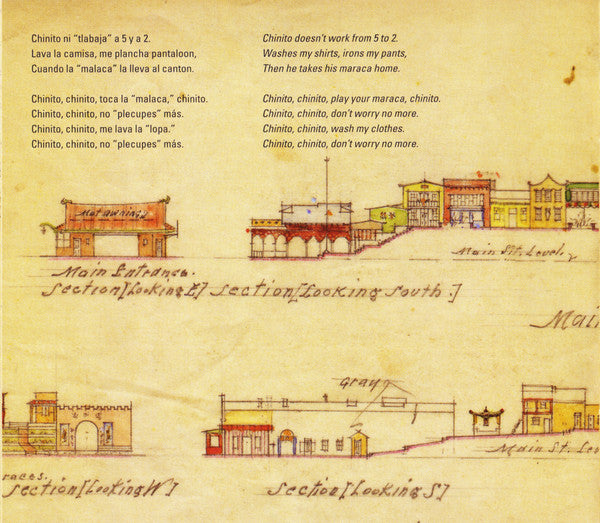 Chinito ni “tlabaja” a 5 y a 2.
Lava la camisa, me plancha pantaloon,
Cuando la “malaca” la lleva al canton.
Chinito, chinito, toca la “malaca,” chinito.
Chinito, chinito, no “plecupes” más.
Chinito, chinito, me lava la “lopa.”
Chinito, chinito, no “plecupes” más.
Chinito doesn’t work from 5 to 2.
Washes my shirts, irons my pants,
Then he takes his maraca home.
Chinito, chinito, play your maraca, chinito.
Chinito, chinito, don’t worry no more.
Chinito, chinito, wash my clothes.
Chinito, chinito, don’t worry no more.
Mat awning
Main St. Level.
Main Entrance.
Section [Looking E] Section [Looking South.]
Main
Gray
Main St. Lev
races.
Section [Looking W]
Section [Looking S]